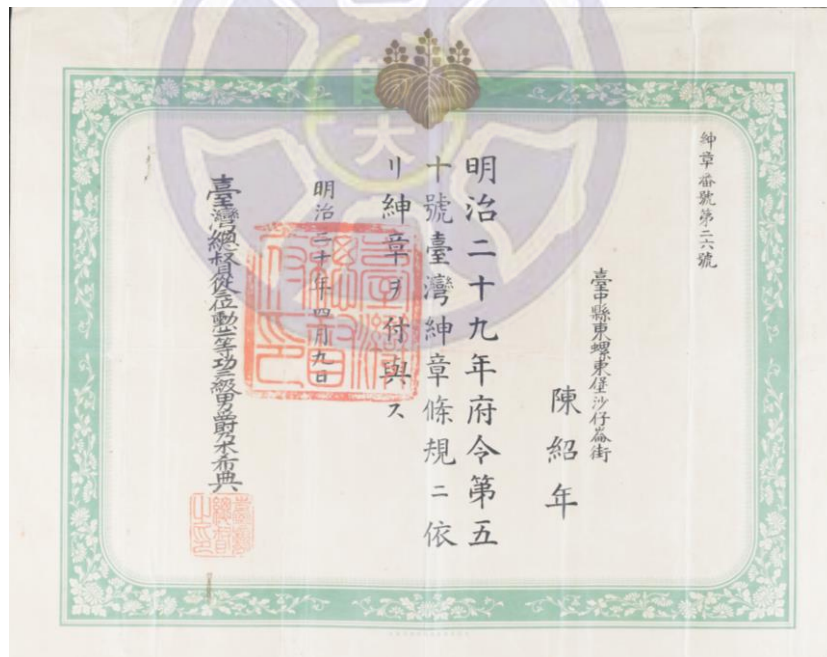 紳章番號第二六號
臺中縣東螺東堡沙仔崙街
陳紹年
明治二十九年府令第五
十號臺灣紳章條規ニ依
リ紳章ヲ付與ス
明治三十年四月九日
臺灣總督從位勳二等功三級男爵乃木希典
臺灣總督府印
臺灣總督之印
大